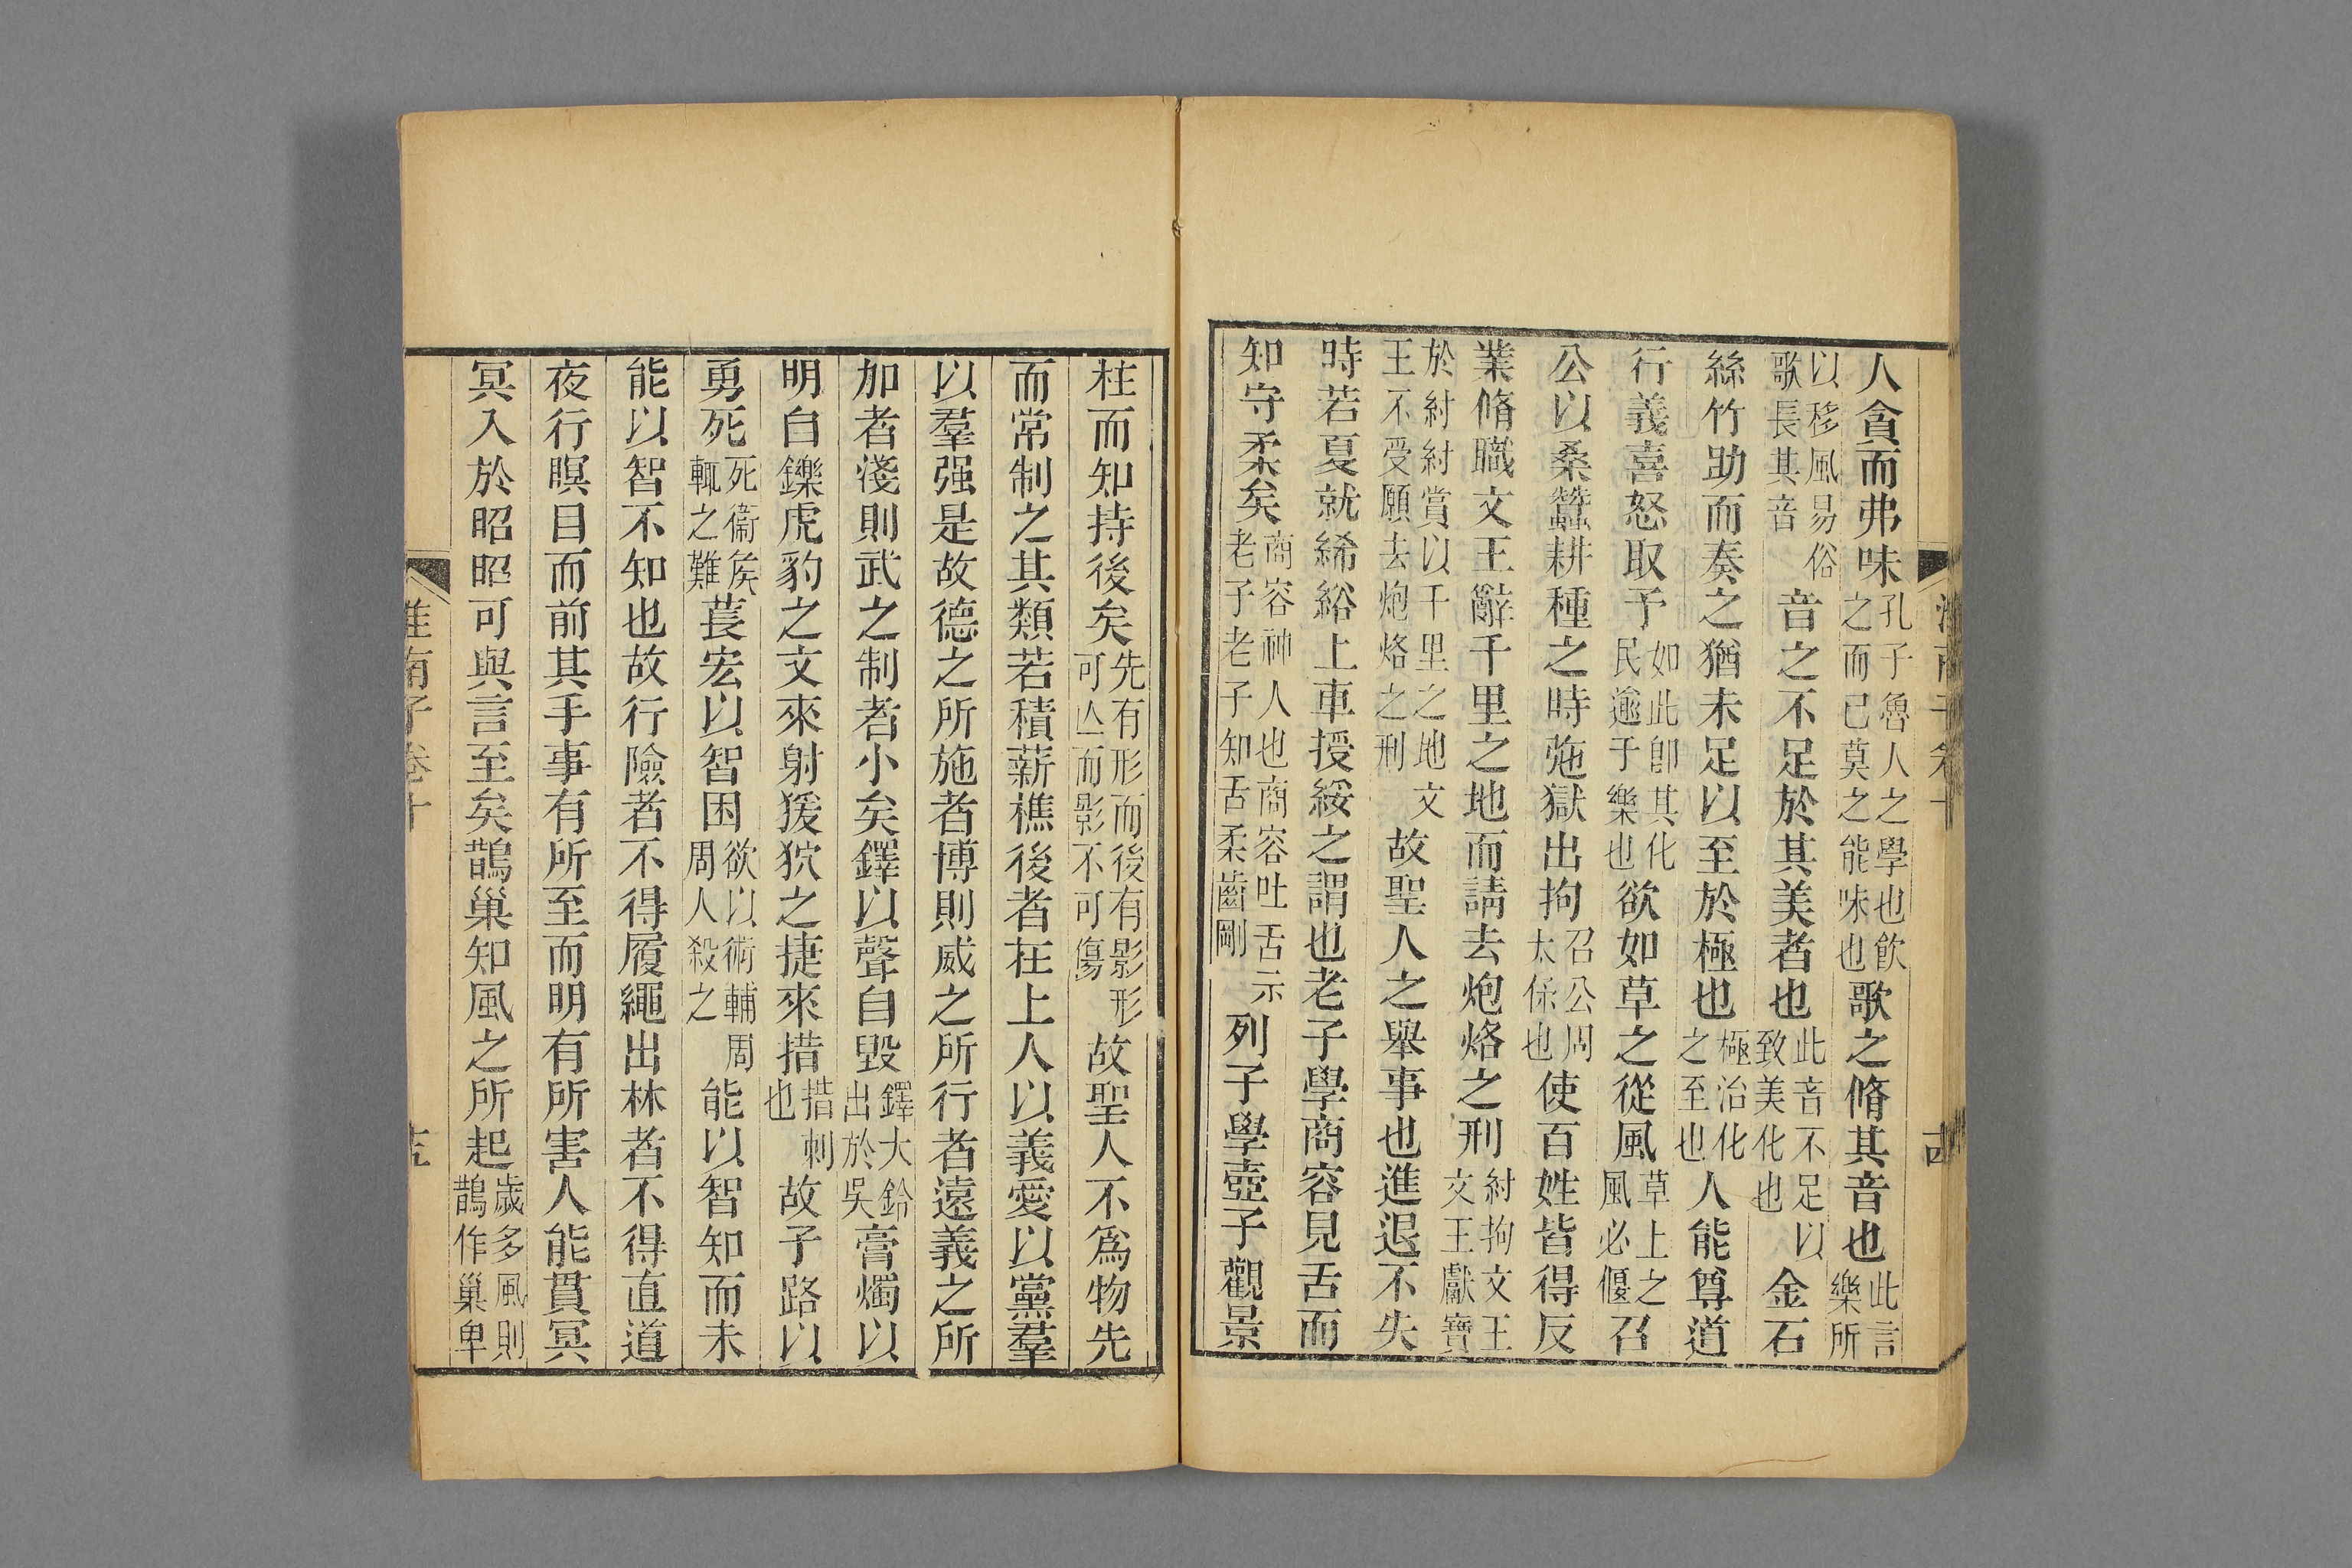 人貪而弗味孔子魯人之學也飲之而已莫之能味也歌之脩其音也此言樂所
以移風易俗歌長其音音之不足於其美者也此音不足以致美化也金石
絲竹助而奏之猶未足以至於極也極治化之至也人能尊道
行義喜怒取予如此卽其化民逾于樂也欲如草之從風草上之風必偃召
公以桑蠶耕種之時弛獄出拘召公周太保也使百姓皆得反
業脩職文王辭千里之地而請去炮烙之刑紂拘文王文王獻寶
於紂紂賞以千里之地文王不受願去炮烙之刑故聖人之舉事也進退不失
時若夏就絺綌上車授綏之謂也老子學商容見舌而
知守柔矣商容神人也商容吐舌示老子老子知舌柔齒剛列子學壺子觀景
柱而知持後矣先有形而後有影形可亾而影不可傷故聖人不爲物先
而常制之其類若積薪樵後者在上人以義愛以黨羣
以羣强是故德之所施者博則威之所行者遠義之所
加者淺則武之制者小矣鐸以聲自毀鐸大鈴出於吳膏燭以
明自鑠虎豹之文來射猨狖之捷來措措刺也故子路以
勇死死衞矦輒之難萇宏以智困欲以術輔周周人殺之能以智知而未
能以智不知也故行險者不得履繩出林者不得直道
夜行瞑目而前其手事有所至而明有所害人能貫冥
冥入於昭昭可與言至矣鵲巢知風之所起歲多風則鵲作巢卑
淮南子卷十